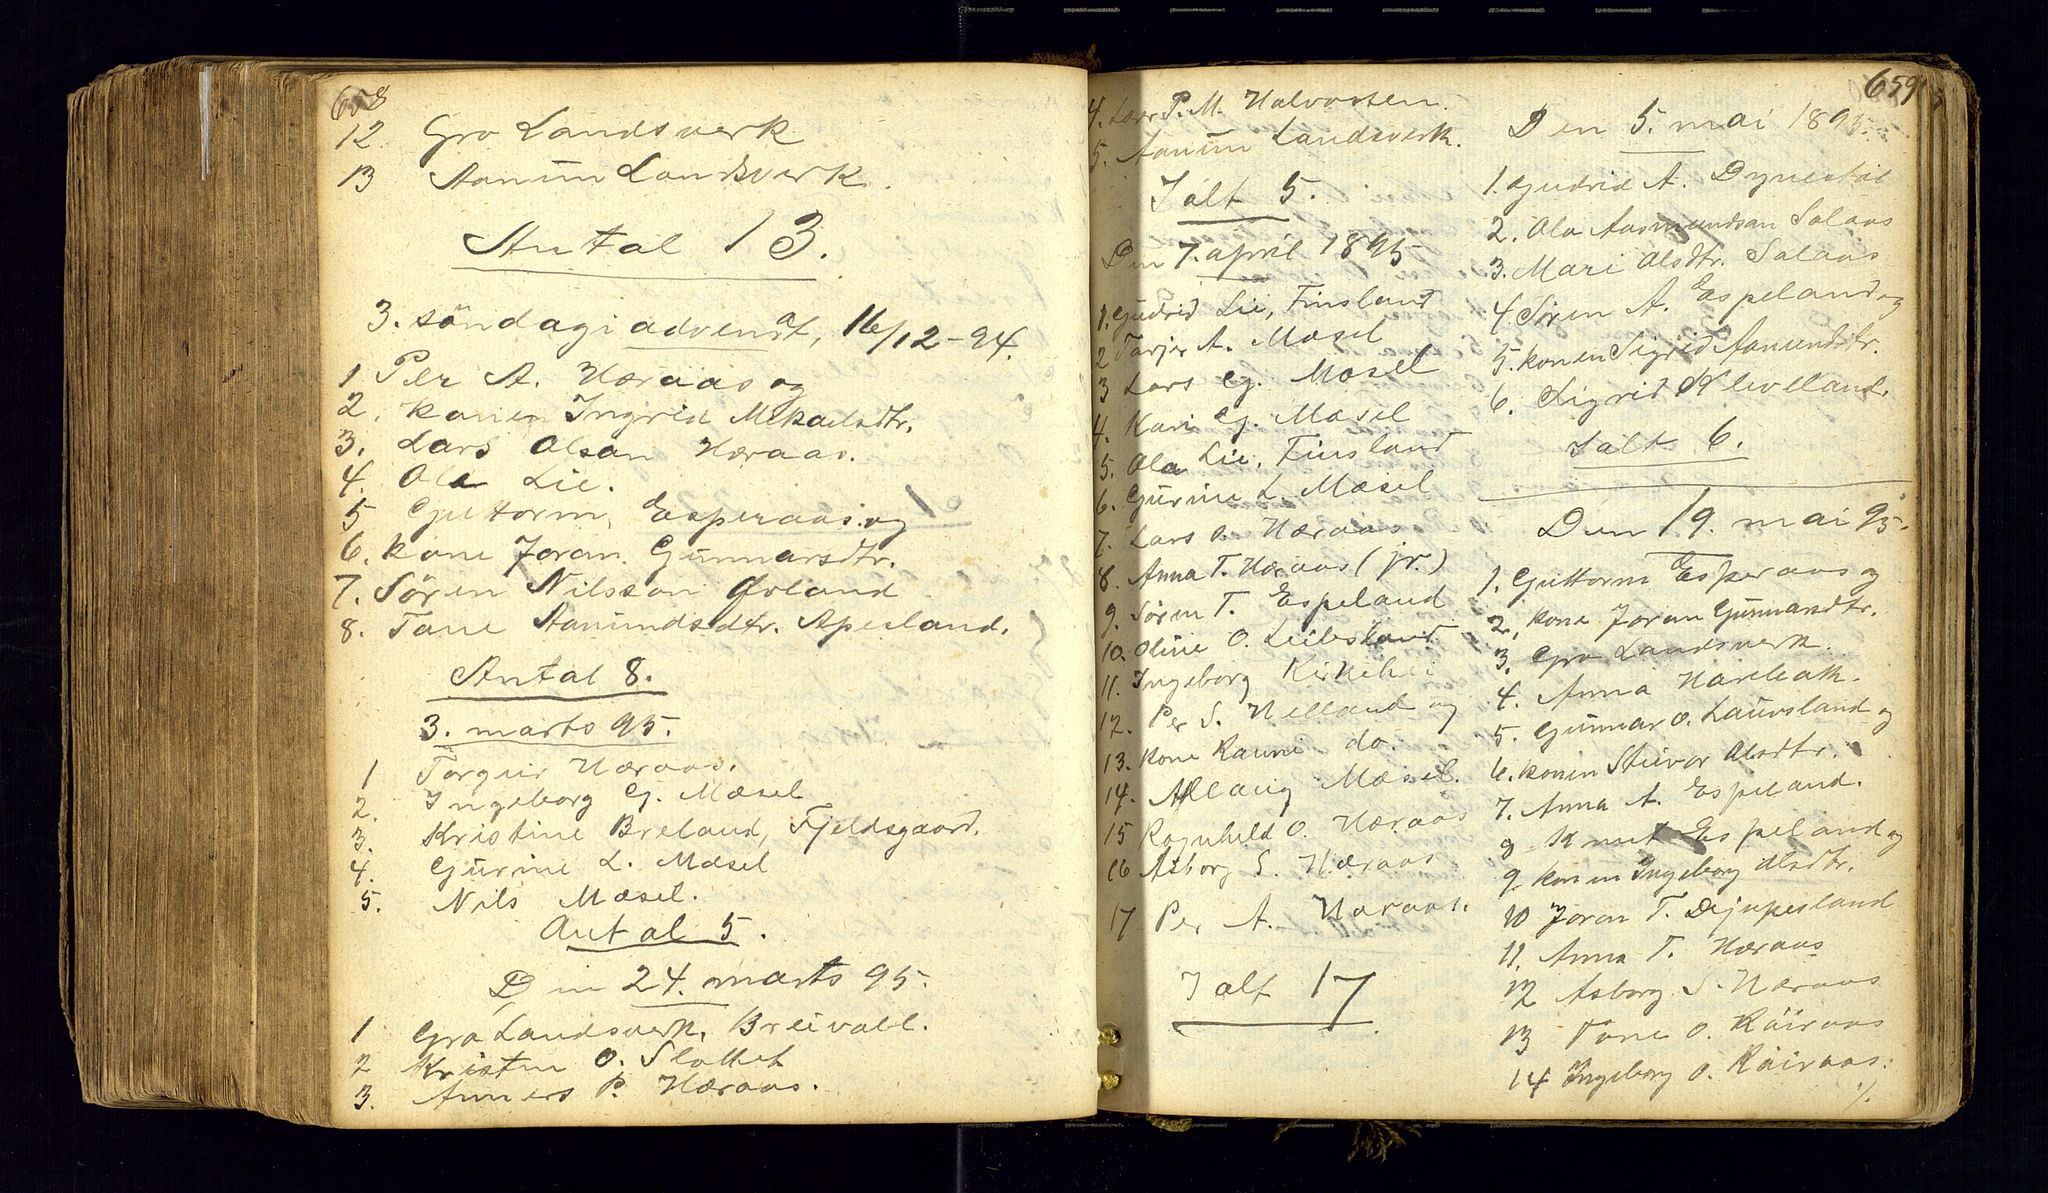 658
12 Gro Landsverk
13 Aanun Landsverk.
Antal 13.
3. söndag i advendt, 16/12-94.
1 Per A. Hæraas og
2. konen Ingrid Mikaelsdtr.
3. Lars Olsan Hæraas.
4. Ola Lie.
5 Guttorm Esperaas og
6. kone Joran Gunnarsdtr.
7. Sören Nilsson Øvland
8. Tone Aanundsdtr. Apesland.
Antal 8.
3. marts 95.
1 Torgeir Hæraas.
2. Ingeborg G. Mæsel
3. Kristine Breland, Fjeldsgaard.
4. Gurine L. Mæsel
5. Nils Mæsel.
Antal 5.
Den 24. marts 95.
1 Gro Landsverk, Breivoll.
2 Kristen O. Slottet
3. Anners P. Hæraas.
4. Lærer P. M. Halvorsen.
5. Aanun Landsverk.
I alt 5.
Den 7. april 1895
1. Gudrid Lie, Finsland
2 Tarjei A. Mæsel
3 Lars G. Mæsel
4. Kari G. Mæsel
5. Ola Lie, Finsland
6. Gurine L. Mæsel
7. Lars O. Hæraas
8. Anna T. Hæraas (jr.)
9. Søren T. Espeland
10. Oline O. Leilesland
11. Ingeborg Kirkelie
12. Per S. Helland og
13. kone Raune do.
14. Allaug Mæsel.
15 Ragnhild O. Hæraas
16 Asborg S. Hæraas
17 Per A. Haraas.
I alt 17
659
Den 5. mai 1895.
1. Gudrid A. Dynestøl
2. Ola Aasmundsan Salaas
3. Mari Olsdtr. Salaas
4. Søren A. Espeland og
5. konen Sigrid Aanundsdtr.
6. Sigrid Kleivelland.
I alt 6.
Den 19. mai 95.
1. Guttorm Esperaas og
2. kone Joran Gunnarsdtr.
3. Gro Landsverk.
4. Anna Hareleath.
5. Gunnar O. Lauvsland og
6. konen Steivor Olsdtr.
7. Anna A. Espeland.
8 Knut Espeland og
9. konen Ingeborg Olsdtr.
10 Joran T. Djupesland
11. Anna T. Hæraas
12 Asborg S. Hæraas
13 Tone O. Röiraas
14 Ingeborg O. Röiraas.
./.